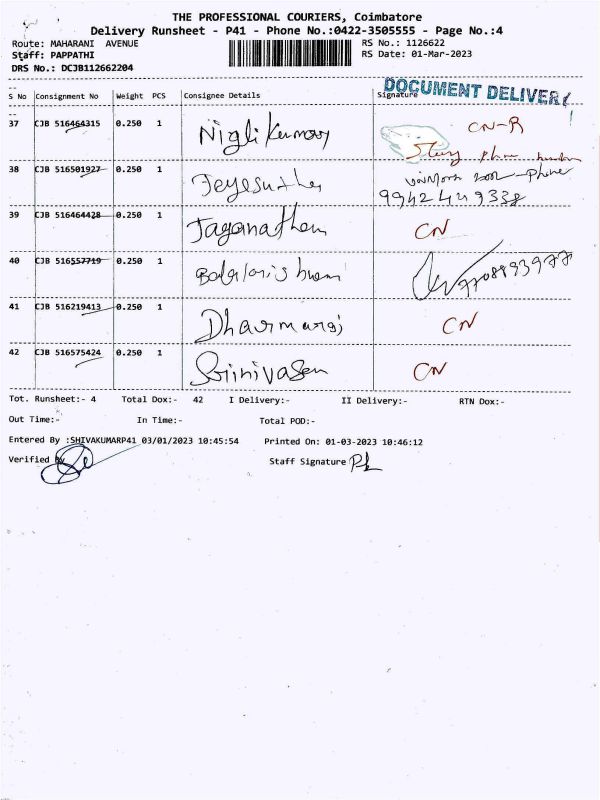 THE PROFESSIONAL COURIERS, Coimbatore
Delivery Runsheet - P41 - Phone No.:0422-3505555 - Page No.:4
Route: MAHARANI AVENUE RS No.: 1126622
Staff: PAPPATHI RS Date: 01-Mar-2023
DRS No.: DCJB112662204
DOCUMENT DELIVERY
S No Consignment No Weight PCS Consignee Details Signature
37 CJB 516464315 0.250 1 CN-R
phone number
38 CJB 516501927 0.250 1 phone
9942449338
39 CJB 516464428 0.250 1 Jaganathan CN
40 CJB 516557719 0.250 1 7708893977
41 CJB 516219413 0.250 1 Dharmaraj CN
42 CJB 516575424 0.250 1 Srinivasan CN
Tot. Runsheet:- 4 Total Dox:- 42 I Delivery:- II Delivery:- RTN Dox:-
Out Time:- In Time:- Total POD:-
Entered By :SHIVAKUMARP41 03/01/2023 10:45:54 Printed On: 01-03-2023 10:46:12
Verified By Staff Signature